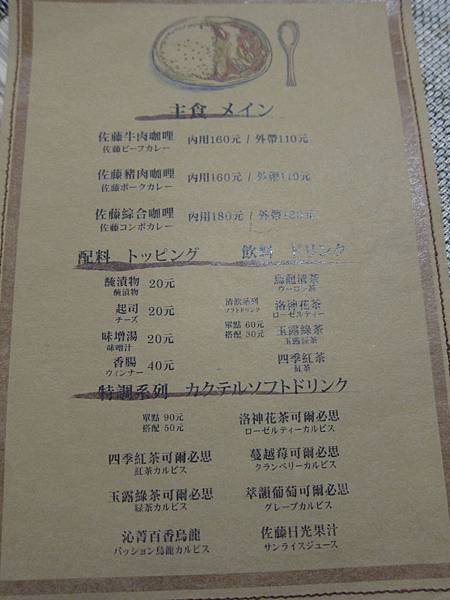 主食 メイン
佐藤牛肉咖哩 內用160元 / 外帶110元
佐藤ビーフカレー
佐藤豬肉咖哩 內用160元 / 外帶110元
佐藤ポークカレー
佐藤綜合咖哩 內用180元 / 外帶120元
佐藤コンボカレー
配料 トッピング
醃漬物 20元
醃漬物
起司 20元
チーズ
味增湯 20元
味增汁
香腸 40元
ウィンナー
飲料 ドリンク
清飲系列
ソフトドリンク
單點 60元
搭配 30元
烏龍清茶
ウーロン茶
洛神花茶
ローゼルティー
玉露綠茶
玉露茶
四季紅茶
紅茶
特調系列 カクテルソフトドリンク
單點 90元
搭配 50元
洛神花茶可爾必思
ローゼルティーカルピス
四季紅茶可爾必思
紅茶カルピス
蔓越莓可爾必思
クランベリーカルピス
玉露綠茶可爾必思
緑茶カルピス
萃韻葡萄可爾必思
グレープカルピス
沁菁百香烏龍
パッション烏龍カルピス
佐藤日光果汁
サンライズジュース